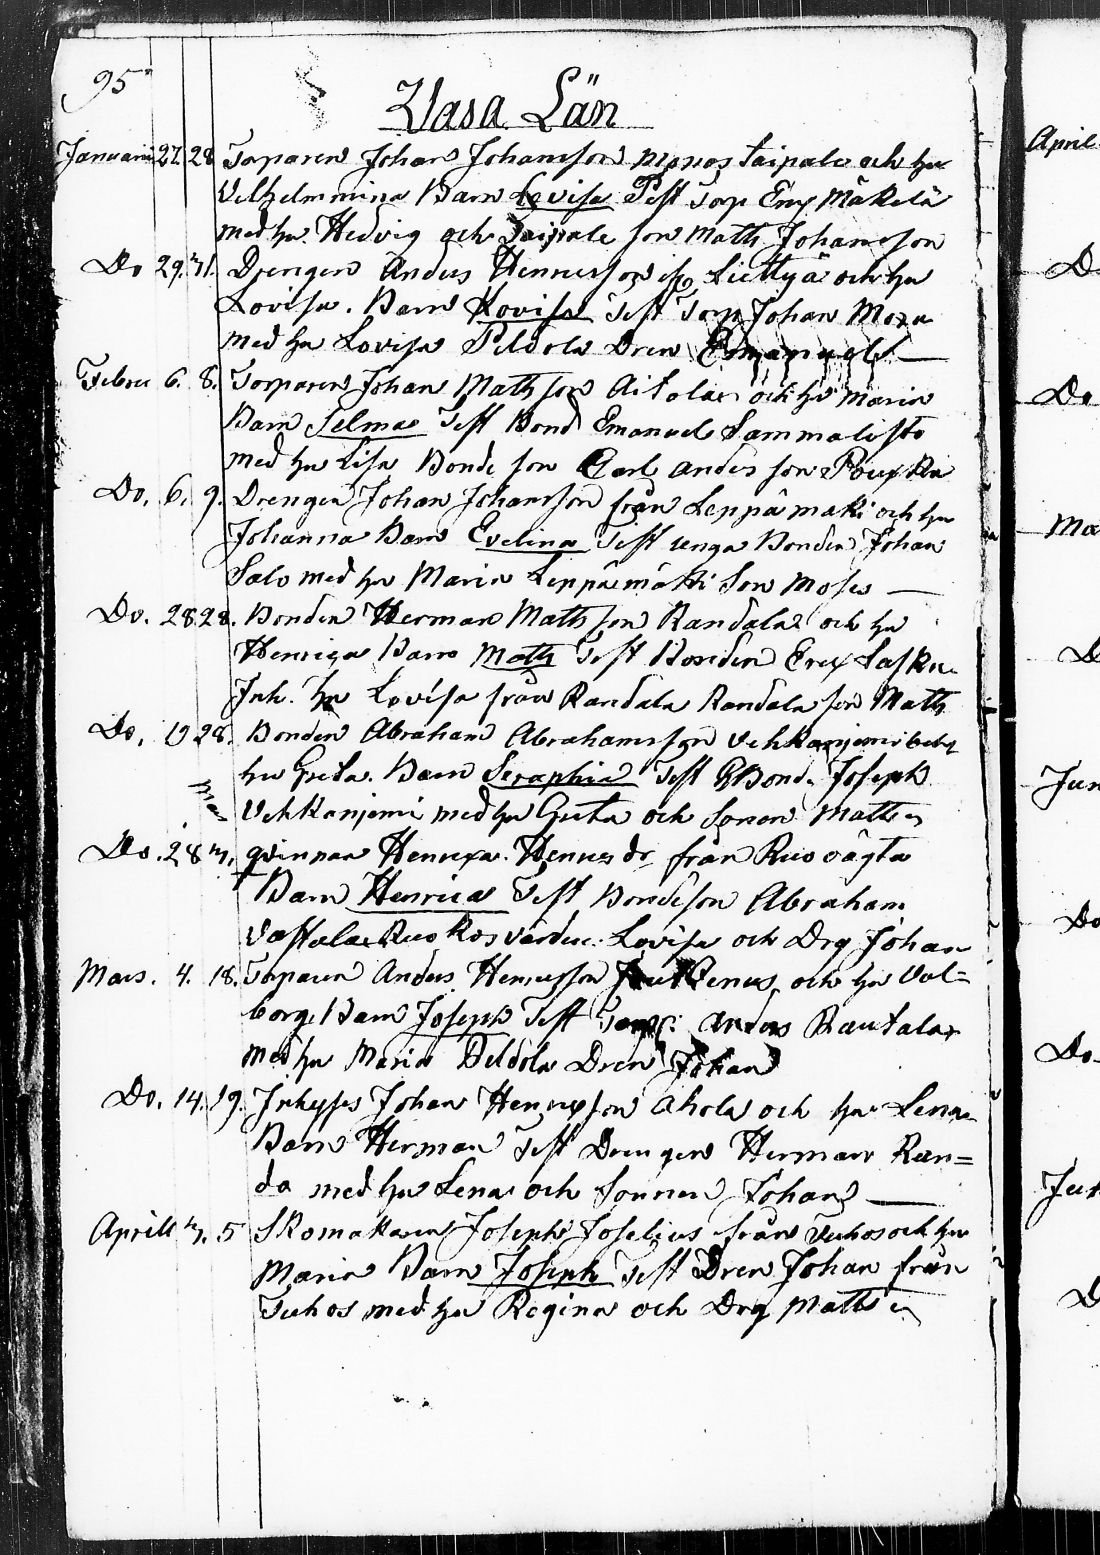 95
Vasa Län
Januari 27. 28. Torparen Johan Johansson Monos taipale och hu
Vilhelmmina Barn Lovisa Test Torp Eric Mäkelä
med hu. Hedvig och Taipale son Matts Johansson
Do 29. Drengen Anders Henricsson Liettyä och hu
Lovisa. Barn Lovisa Test Torp Johan
med hu Lovisa Peldola Dren Emanuel —
Febru 6. 8. Torparen Johan Matsson Aitola och hu Maria
Barn Selma Test Bond Emanuel Sammalisto
med hu Lisa Bonde son Carl Anders son
Do. 6. 9. Drengen Johan Johansson från Leppämäki och hu
Johanna Barn Evelina Test unga Bonden Johan
Salo med hu Maria Leppämäki Son Moses —
Do. 28. 28. Bonden Herman Mattsson Randala och hu
Henrica Barn Matts Test Bonden Eric
Inh. hu Lovisa från Randala Randala son Matts
Do. 19 28. Bonden Abraham Abrahamsson Vehkanjemi och
hu Greta. Barn Seraphia Test Bond. Joseph
Vehkanjemi med hu Greta och Sonen Matts
Mar
Do. 28 qvinnan Henrica Henrics dr från
Barn Henrica Test Bondeson Abraham
Lovisa och Drg Johan
Mars. 4. 18. Torparen Anders Henricsson och hu Val=
borg. Barn Joseph Test Torp: Anders Rautala
med hu Maria Peldola Dren Johan
Do. 14. 19. Inhyses Johan Henricsson Ahola och hu Lena
Barn Herman Test Drengen Herman Ran=
da med hu Lena och Sonnen Johan —
Aprill 5 Skomakaren Joseph Joselius från Tuhos och hu
Maria Barn Joseph Test Dren Johan från
Tuhos med hu Regina och Drg Matts
April
D
Do
Ma
D
Jun
Do
Do
Jun
D